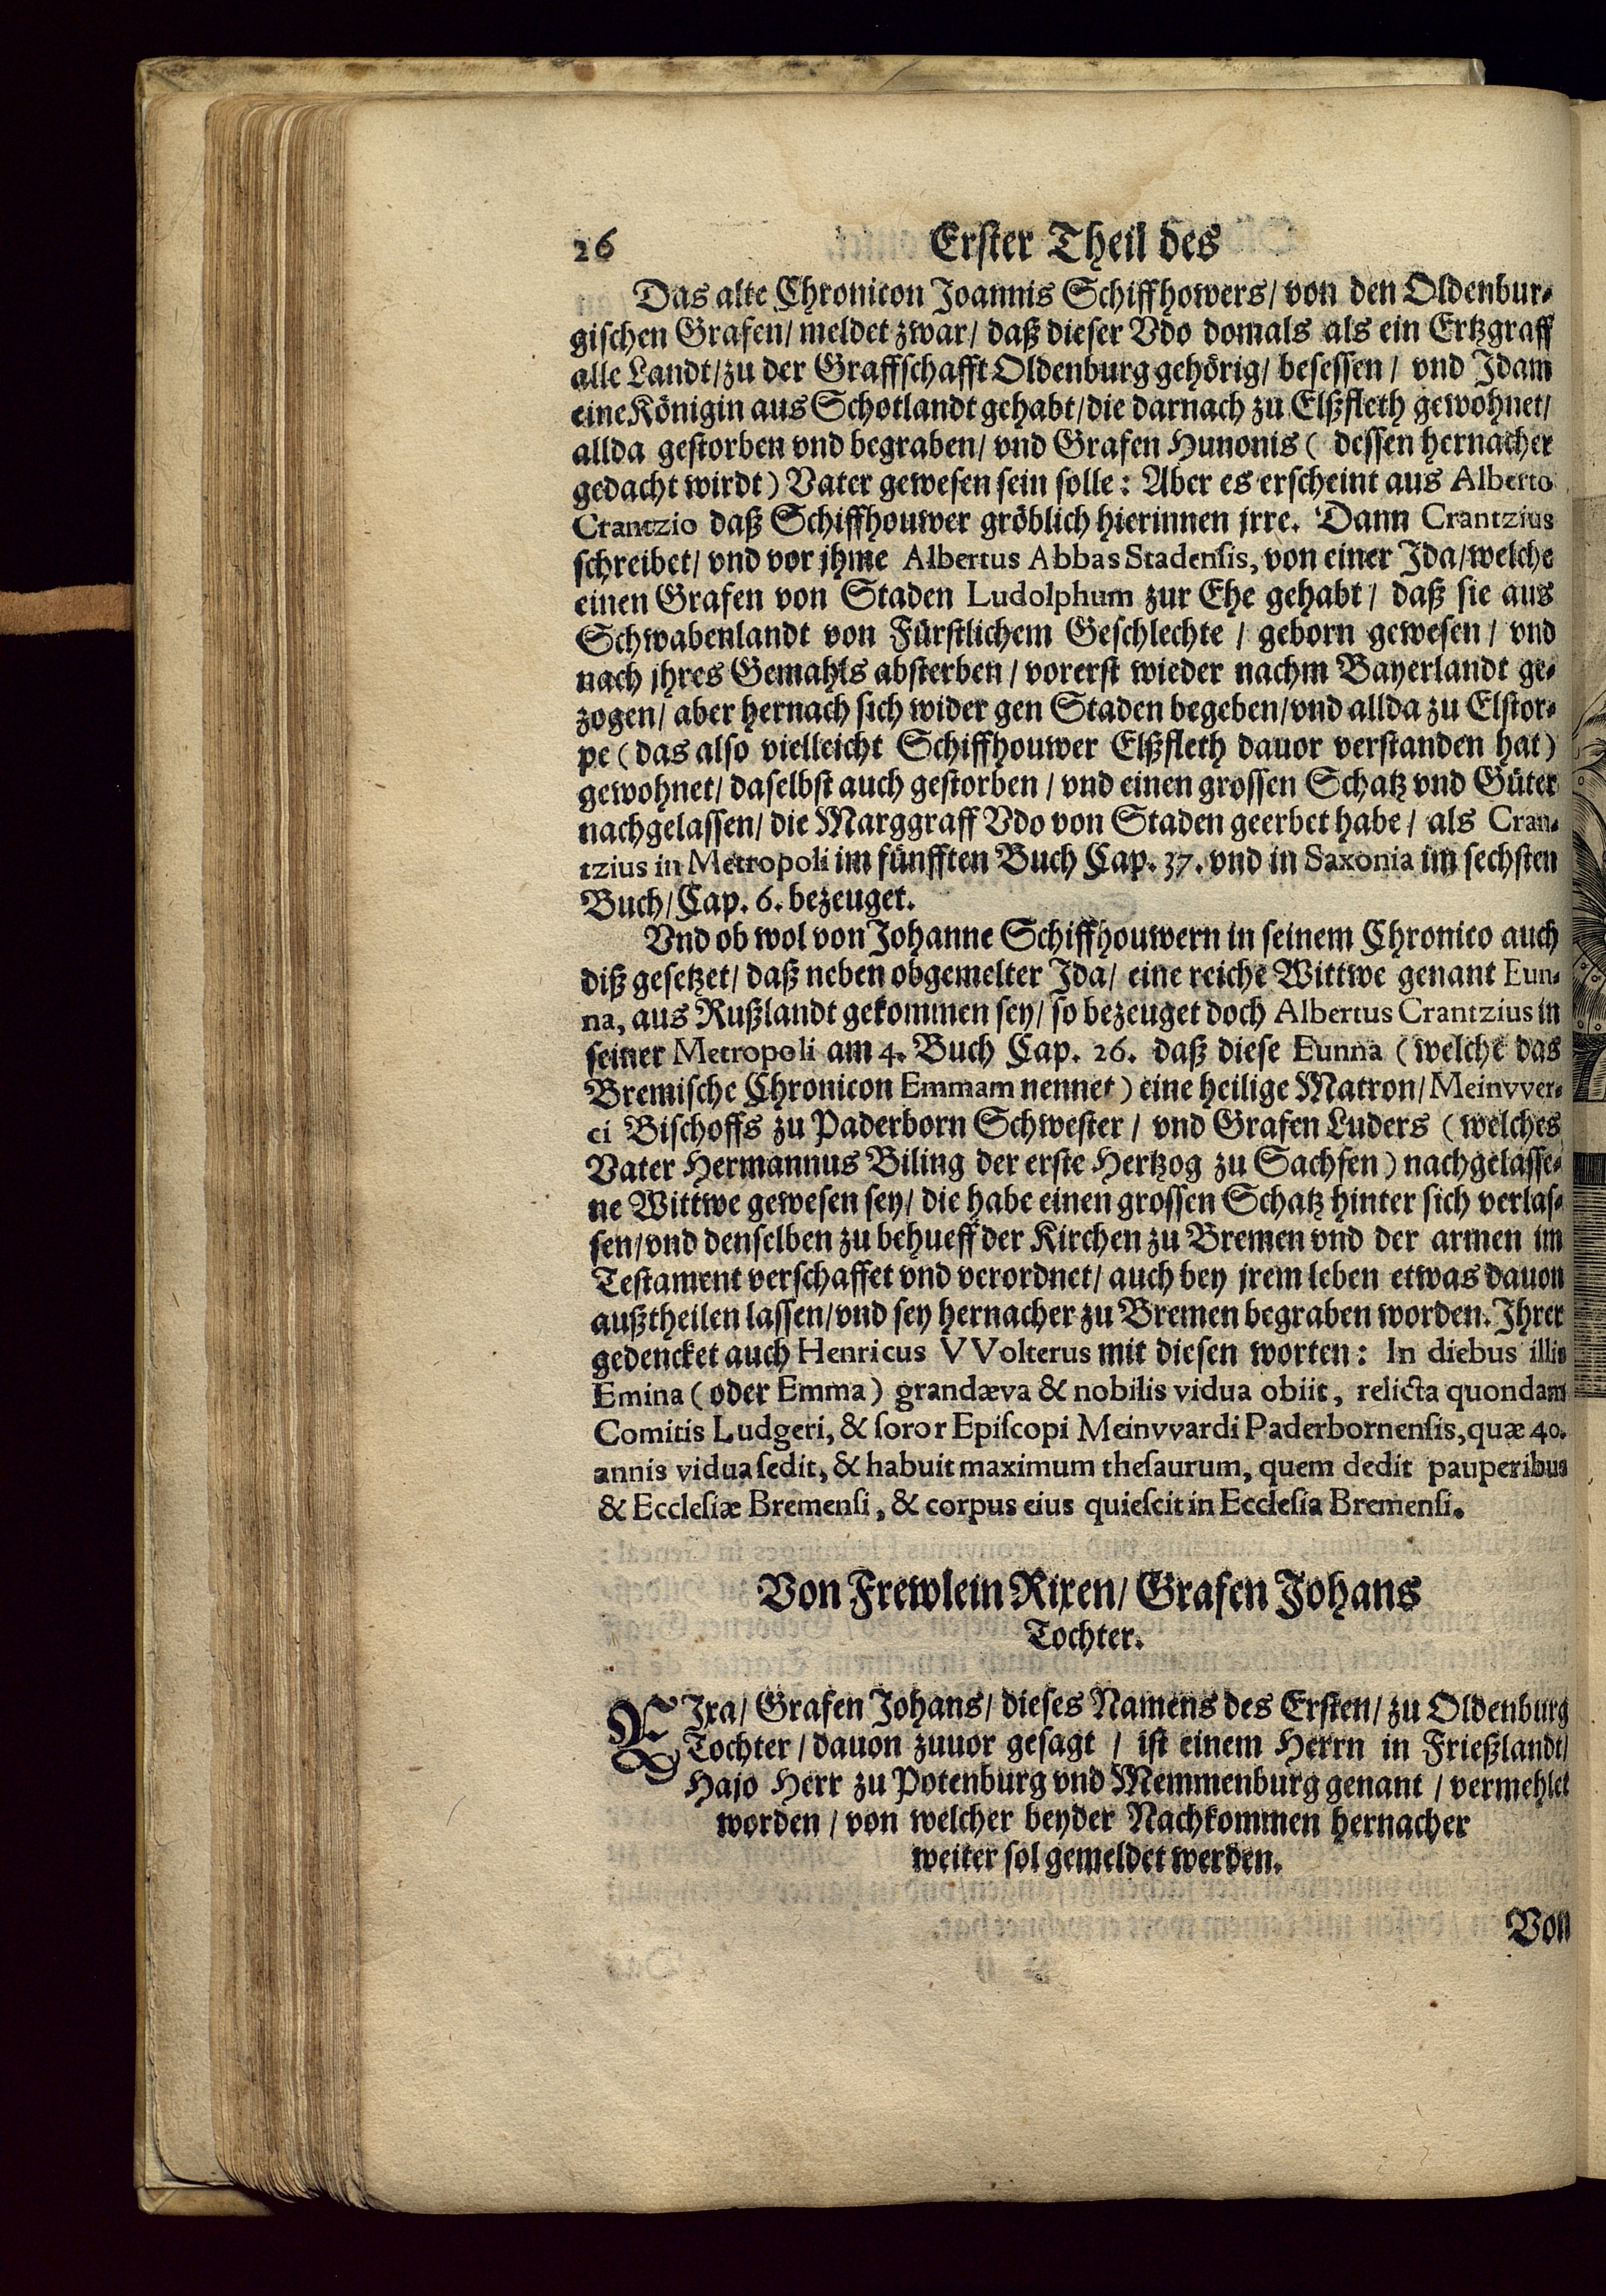 26 Erster Theil des
Das alte Chronicon Joannis Schiffhowers/ von den Oldenbur-
gischen Grafen/ meldet zwar/ daß dieser Vdo domals als ein Ertzgraff
alle Landt/ zu der Graffschafft Oldenburg gehörig/ besessen / vnd Idam
eine Königin aus Schotlandt gehabt/ die darnach zu Elßfleth gewohnet/
allda gestorben vnd begraben/ vnd Grafen Hunonis ( dessen hernacher
gedacht wirdt) Vater gewesen sein solle: Aber es erscheint aus Alberto
Crantzio daß Schiffhouwer gröblich hierinnen jrre. Dann Crantzius
schreibet/ vnd vor jhme Albertus Abbas Stadensis, von einer Ida/ welche
einen Grafen von Staden Ludolphum zur Ehe gehabt / daß sie aus
Schwabenlandt von Fürstlichem Geschlechte / geborn gewesen / vnd
nach jhres Gemahls absterben / vorerst wieder nachm Bayerlandt ge-
zogen/ aber hernach sich wider gen Staden begeben/ vnd allda zu Elstor-
pe (das also vielleicht Schiffhouwer Elßfleth dauor verstanden hat)
gewohnet/ daselbst auch gestorben / vnd einen grossen Schatz vnd Güter
nachgelassen/ die Marggraff Vdo von Staden geerbet habe / als Cran-
tzius in Metropoli im fünfften Buch Cap. 37. vnd in Saxonia im sechsten
Buch/ Cap. 6. bezeuget.
Vnd ob wol von Johanne Schiffhouwern in seinem Chronico auch
diß gesetzet/ daß neben obgemelter Ida/ eine reiche Wittwe genant Eun-
na, aus Rußlandt gekommen sey/ so bezeuget doch Albertus Crantzius in
seiner Metropoli am 4. Buch Cap. 26. daß diese Eunna (welche das
Bremische Chronicon Emmam nennet) eine heilige Matron/ Meinvver-
ci Bischoffs zu Paderborn Schwester / vnd Grafen Luders (welches
Vater Hermannus Biling der erste Hertzog zu Sachsen) nachgelasse-
ne Wittwe gewesen sey/ die habe einen grossen Schatz hinter sich verlas-
sen/ vnd denselben zu behueff der Kirchen zu Bremen vnd der armen im
Testament verschaffet vnd verordnet/ auch bey jrem leben etwas dauon
außtheilen lassen/ vnd sey hernacher zu Bremen begraben worden. Ihrer
gedencket auch Henricus VVolterus mit diesen worten: In diebus illis
Emina (oder Emma) grandæva & nobilis vidua obiit, relicta quondam
Comitis Ludgeri, & soror Episcopi Meinvvardi Paderbornensis, quæ 40.
annis vidua sedit, & habuit maximum thesaurum, quem dedit pauperibus
& Ecclesiæ Bremensi, & corpus eius quiescit in Ecclesia Bremensi.
Von Frewlein Rixen/ Grafen Johans
Tochter.
RIxa/ Grafen Johans/ dieses Namens des Ersten/ zu Oldenburg
Tochter / dauon zuuor gesagt / ist einem Herrn in Frießlandt/
Hajo Herr zu Potenburg vnd Memmenburg genant / vermehlet
worden / von welcher beyder Nachkommen hernacher
weiter sol gemeldet werden.
Von